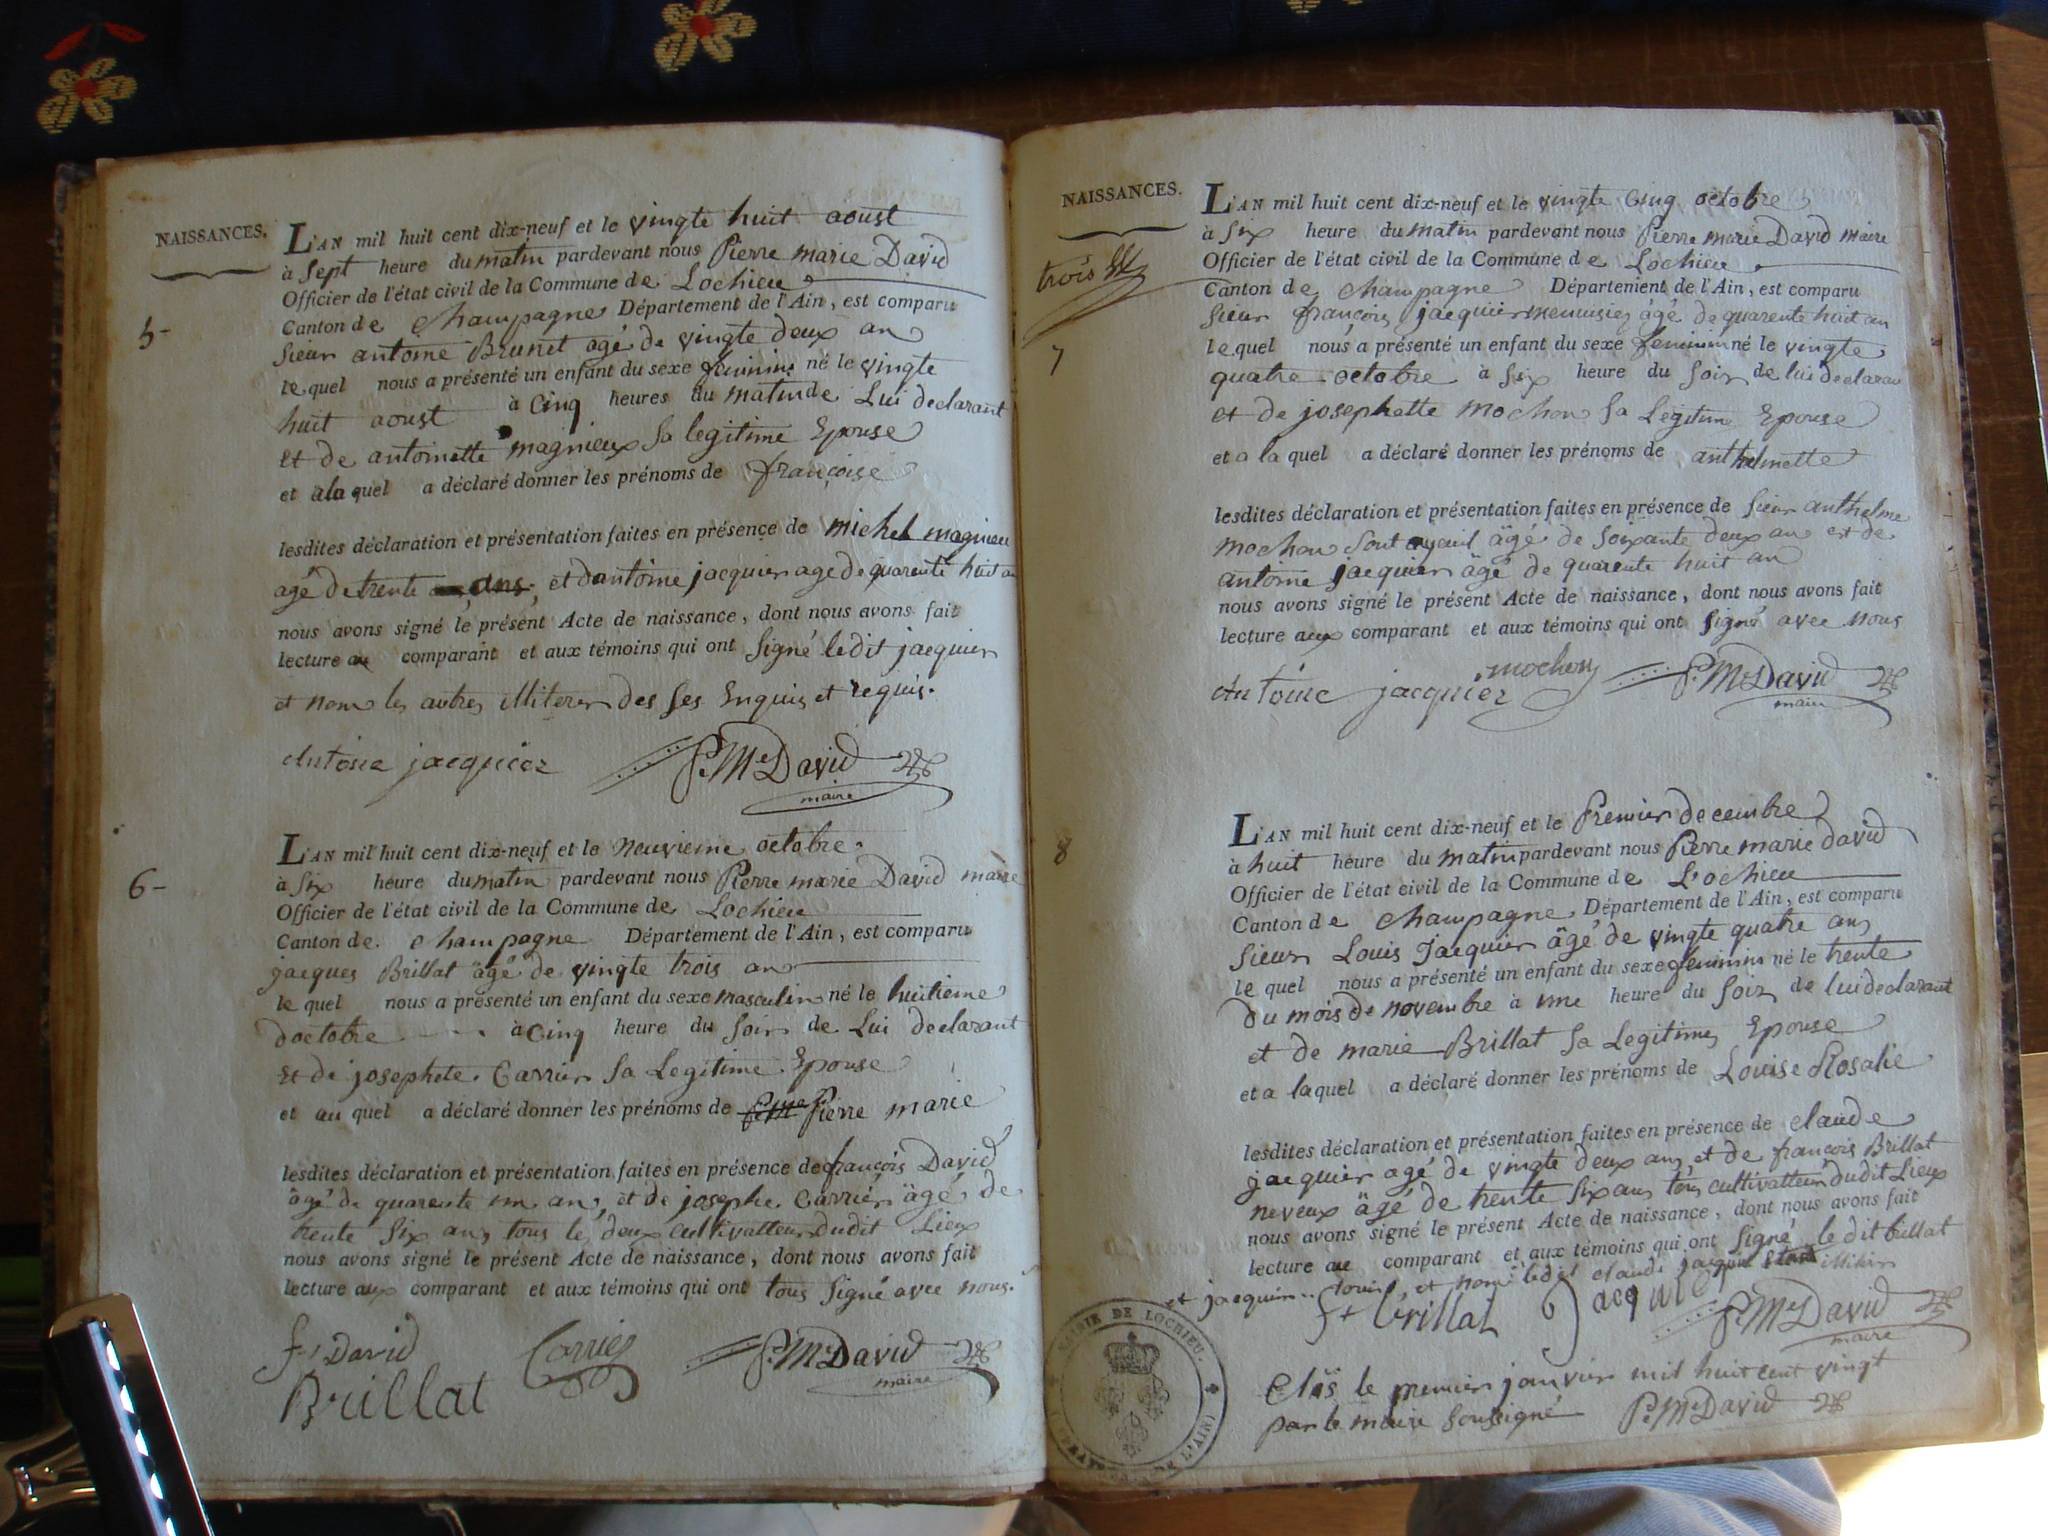 NAISSANCES.
5-
L'AN mil huit cent dix-neuf et le vingte huit aoust
à sept heure du matin pardevant nous Pierre marie David
Officier de l'état civil de la Commune de Lochieu
Canton de Champagne Département de l'Ain, est comparu
sieur antoine Brunet agé de vingte deux an
le quel nous a présenté un enfant du sexe feminin né le vingte
huit aoust à Cinq heures du matin de Lui declarant
et de antoinette magnieux sa legitime Epouse
et a la quel a déclaré donner les prénoms de françoise
lesdites déclaration et présentation faites en présence de michel magnieu
agé de trente ans, et dantoine jacquier age de quarente huit an
nous avons signé le présent Acte de naissance, dont nous avons fait
lecture au comparant et aux témoins qui ont signé ledit jacquier
et nom les autres illiterer des ses Enquis et requis.
Antoine jacquier P. Me David
maire
6-
L'AN mil huit cent dix-neuf et le neuvieme octobre.
à six heure du matin pardevant nous Pierre marie David maire
Officier de l'état civil de la Commune de Lochieu
Canton de. Champagne Département de l'Ain, est comparu
jacques Brillat agé de vingte trois an
le quel nous a présenté un enfant du sexe masculin né le huitieme
doctobre à Cinq heure du soir de Lui declarant
et de josephete. Carrier sa Legitime Epouse
et au quel a déclaré donner les prénoms de Pierre marie
lesdites déclaration et présentation faites en présence de françois David
âgé de quarente un an, et de josephe Carrier âgé de
trente six an, tous les deux cultivatteur dudit Lieux
nous avons signé le présent Acte de naissance, dont nous avons fait
lecture aux comparant et aux témoins qui ont tous signé avec nous.
f. David Carrier P. Me David
maire
Brillat
NAISSANCES.
trois
7
L'AN mil huit cent dix-neuf et le vingte Cinq octobre
à six heure du matin pardevant nous Pierre marie David maire
Officier de l'état civil de la Commune de Lochieu
Canton de Champagne Département de l'Ain, est comparu
sieur françois jacquier menuisier âgé de quarente huit an
le quel nous a présenté un enfant du sexe feminin né le vingte
quatre octobre à six heure du soir de lui declaran
et de josephette mochon sa Legitime Epouse
et a la quel a déclaré donner les prénoms de anthelmette
lesdites déclaration et présentation faites en présence de sieur anthelme
mochon sont ayeuil âgé de soixante deux an et de
antoine jacquier âgé de quarente huit an
nous avons signé le présent Acte de naissance, dont nous avons fait
lecture aux comparant et aux témoins qui ont signé avec nous
mochon
Antoine jacquier P. Me David
maire
8
L'AN mil huit cent dix-neuf et le Premier decembre
à huit heure du matin pardevant nous Pierre marie david
Officier de l'état civil de la Commune de Lochieu
Canton de Champagne Département de l'Ain, est comparu
sieur Louis Jacquier âgé de vingte quatre an,
le quel nous a présenté un enfant du sexe feminin né le trente
du mois de novembre à une heure du soir de lui declarant
et de marie Brillat sa Legitime Epouse
et a laquel a déclaré donner les prénoms de Louise Rosalie
lesdites déclaration et présentation faites en présence de claude
jacquier agé de vingte deux an, et de francois Brillat
neveux âgé de trente six an, tous cultivatteur dudit Lieux
nous avons signé le présent Acte de naissance, dont nous avons fait
lecture au comparant et aux témoins qui ont signé le dit brillat
et jacquier Louis, et nom ledit claude jacquier
fs Brillat Jacquier P. Me David
maire
MAIRIE DE LOCHIEU.
DE L'AIN
Clos le premier janvier mil huit cent vingt
par le maire soussigné P. Me David